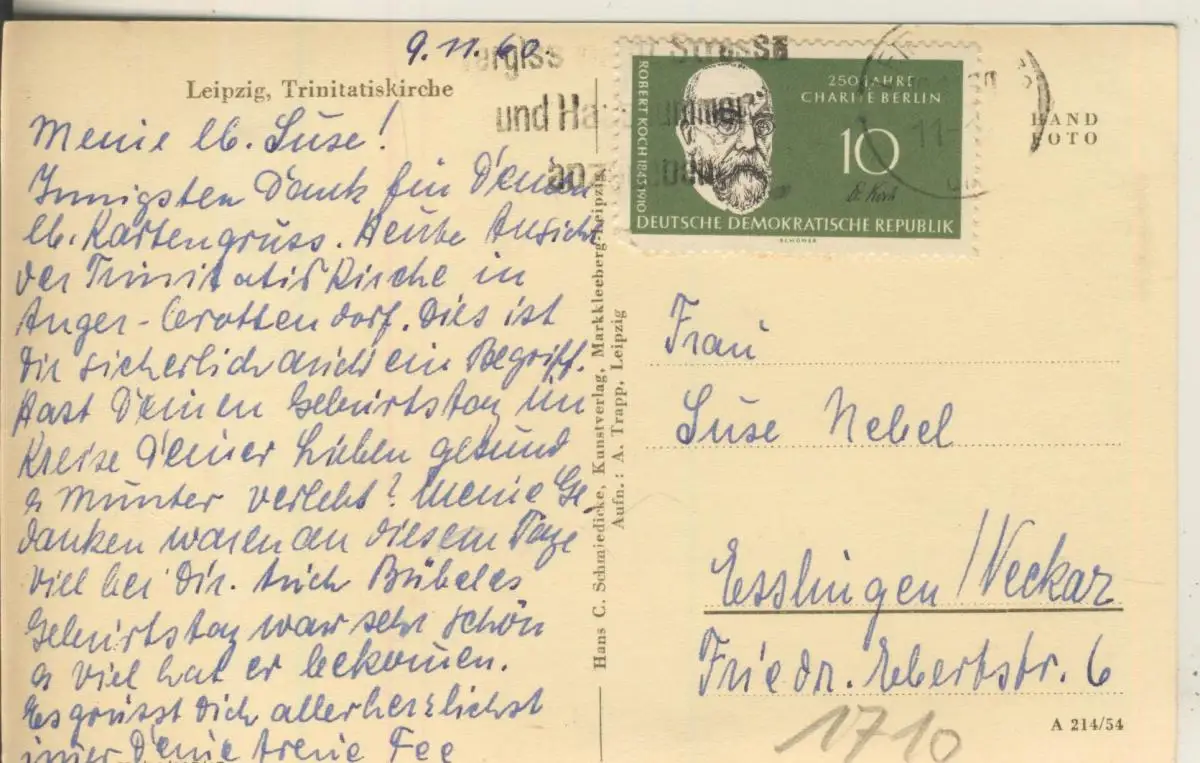 9.11.60.
Leipzig, Trinitatiskirche
Meine lb. Suse!
Innigsten Dank für Deinen
lb. Kartengruss. Heute Ansicht
der Trinitatiskirche in
Anger-Crottendorf. Dies ist
Dir sicherlich auch ein Begriff.
Hast Deinen Geburtstag im
Kreise Deiner Lieben gesund
& munter verlebt? Meine Ge-
danken waren an diesem Tage
viel bei Dir. Auch Bübeles
Geburtstag war sehr schön
& viel hat er bekommen.
Es grüsst Dich allerherzlichst
immer Deine treue Fee
Hans C. Schmiedicke, Kunstverlag, Markkleeberg-Leipzig
Aufn.: A. Trapp, Leipzig
Strasse
und
ROBERT KOCH 1843-1910
250 JAHRE
CHARITÉ BERLIN
10
R. Koch
DEUTSCHE DEMOKRATISCHE REPUBLIK
SCHÖNER
HAND
FOTO
Frau
Suse Nebel
Esslingen/Neckar
Friedr. Ebertstr. 6
A 214/54
1710